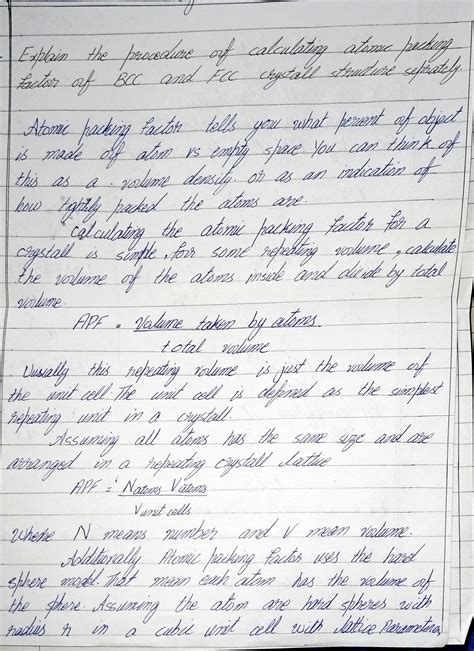 Explain the procedure of calculating atomic packing
factor of BCC and FCC crystall structure seprately
Atomic packing factor tells you what percent of object
is made of atom vs empty space You can think of
this as a volume density or as an indication of
how tightly packed the atoms are.
Calculating the atomic packing factor for a
crystall is simple, for some repeating volume, calculate
the volume of the atoms inside and divide by total
volume
APF = Volume taken by atoms
total volume
Usually this repeating volume is just the volume of
the unit cell. The unit cell is defined as the simplest
repeating unit in a crystall
Assuming all atoms has the same size and are
arranged in a repeating crystall lattice
APF = Natoms Vatoms
Vunit cells
Where N means number and V mean volume.
Additionally Atomic packing factor uses the hard
sphere model. That mean each atom has the volume of
the sphere. Assuming the atom are hard spheres with
radius r in a cubic unit cell with lattice Parameter a,